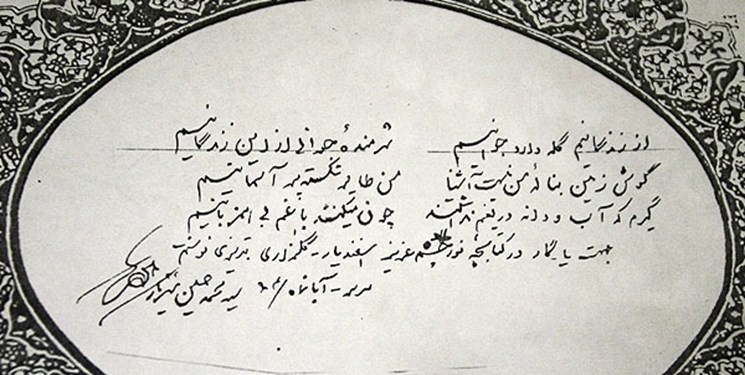 از زندگانیم گله دارد جوانیم شرمندهٔ جوانی از این زندگانیم
گوش زمین بنالهٔ من نیست آشنا من طایر شکسته پر آسمانیم
گیرم که آب و دانه دریغم نداشتند چون میکنند با غم بی همزبانیم
جهت یادگار در کتابچه نورچشم عزیز اسفندیار - تبریزی نوشتم
سید محمد حسین شهریار